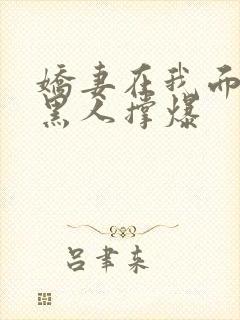 娇妻在我而
黑人撑爆
吕聿来